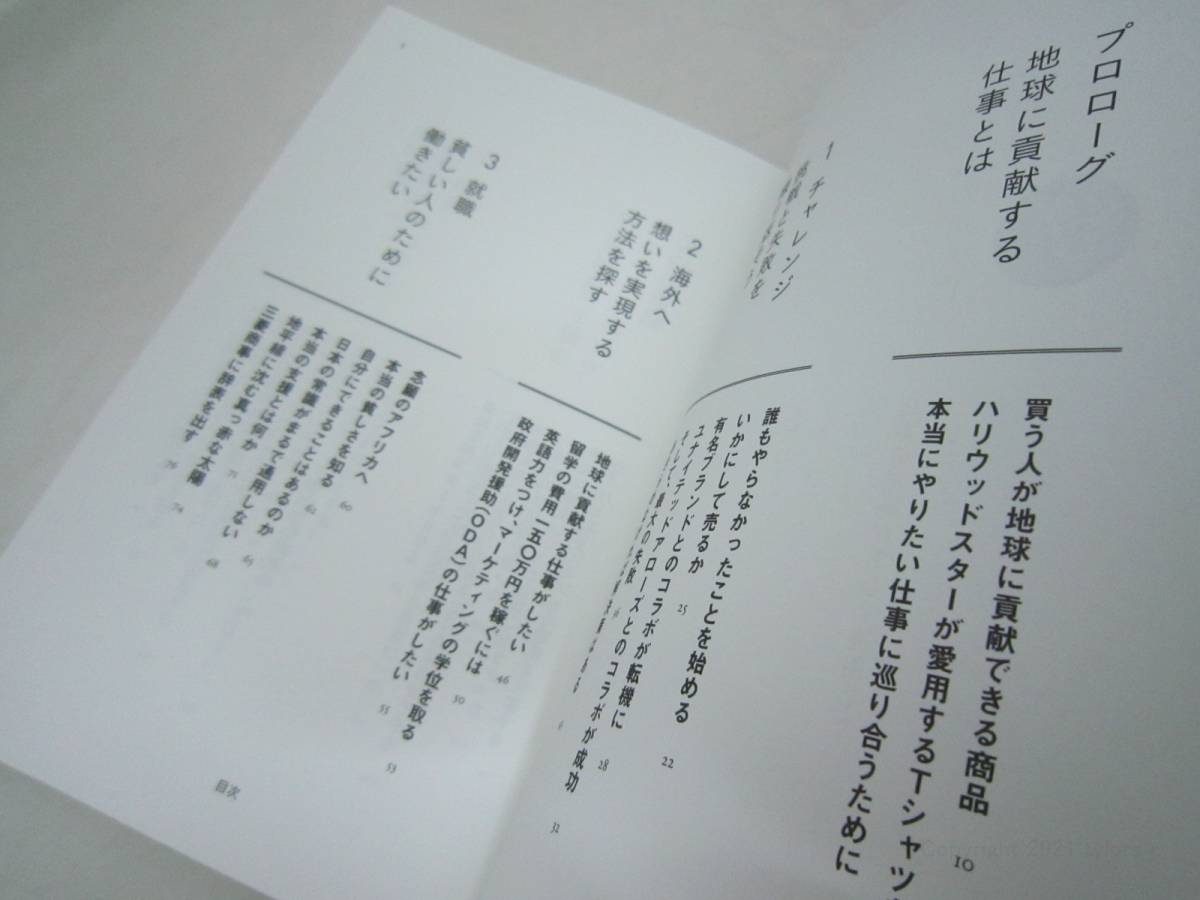 プロローグ
地球に貢献する
仕事とは
買う人が地球に貢献できる商品 10
ハリウッドスターが愛用するTシャツ
本当にやりたい仕事に巡り合うために
1 チャレンジ
誰もやらなかったことを始める 22
いかにして売るか 25
有名ブランドとのコラボが転機に 28
ユナイテッドアローズとのコラボが成功 32
2 海外へ
想いを実現する
方法を探す
地球に貢献する仕事がしたい 46
留学の費用一五〇万円を稼ぐには 50
英語力をつけ、マーケティングの学位を取る 53
政府開発援助(ODA)の仕事がしたい 55
3 就職
貧しい人のために
働きたい
念願のアフリカへ 60
本当の貧しさを知る 62
自分にできることはあるのか 65
日本の常識がまるで通用しない 68
本当の支援とは何か 71
地平線に沈む真っ赤な太陽 74
三菱商事に辞表を出す 76
目次